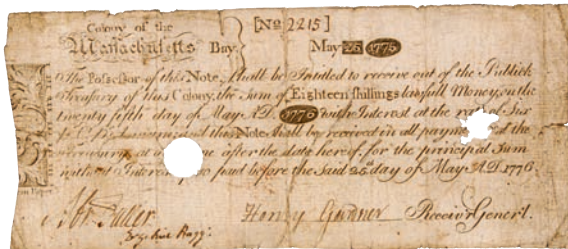 Colony of the [No 2215]
Massachusetts Bay. May 25 1775
The Possessor of this Note, shall be Intitled to receive out of the Publick
Treasury of this Colony, the Sum of Eighteen shillings lawfull Money, on the
twenty fifth day of May A.D. 1776 with Interest at the rate of Six
Annum; and this Note shall be received in all paym at the
Treasury at after the date hereof, for the principal Sum
without Interest, paid before the Said 25th day of May A.D. 1776.
Henry Gardner Receivr Generl.